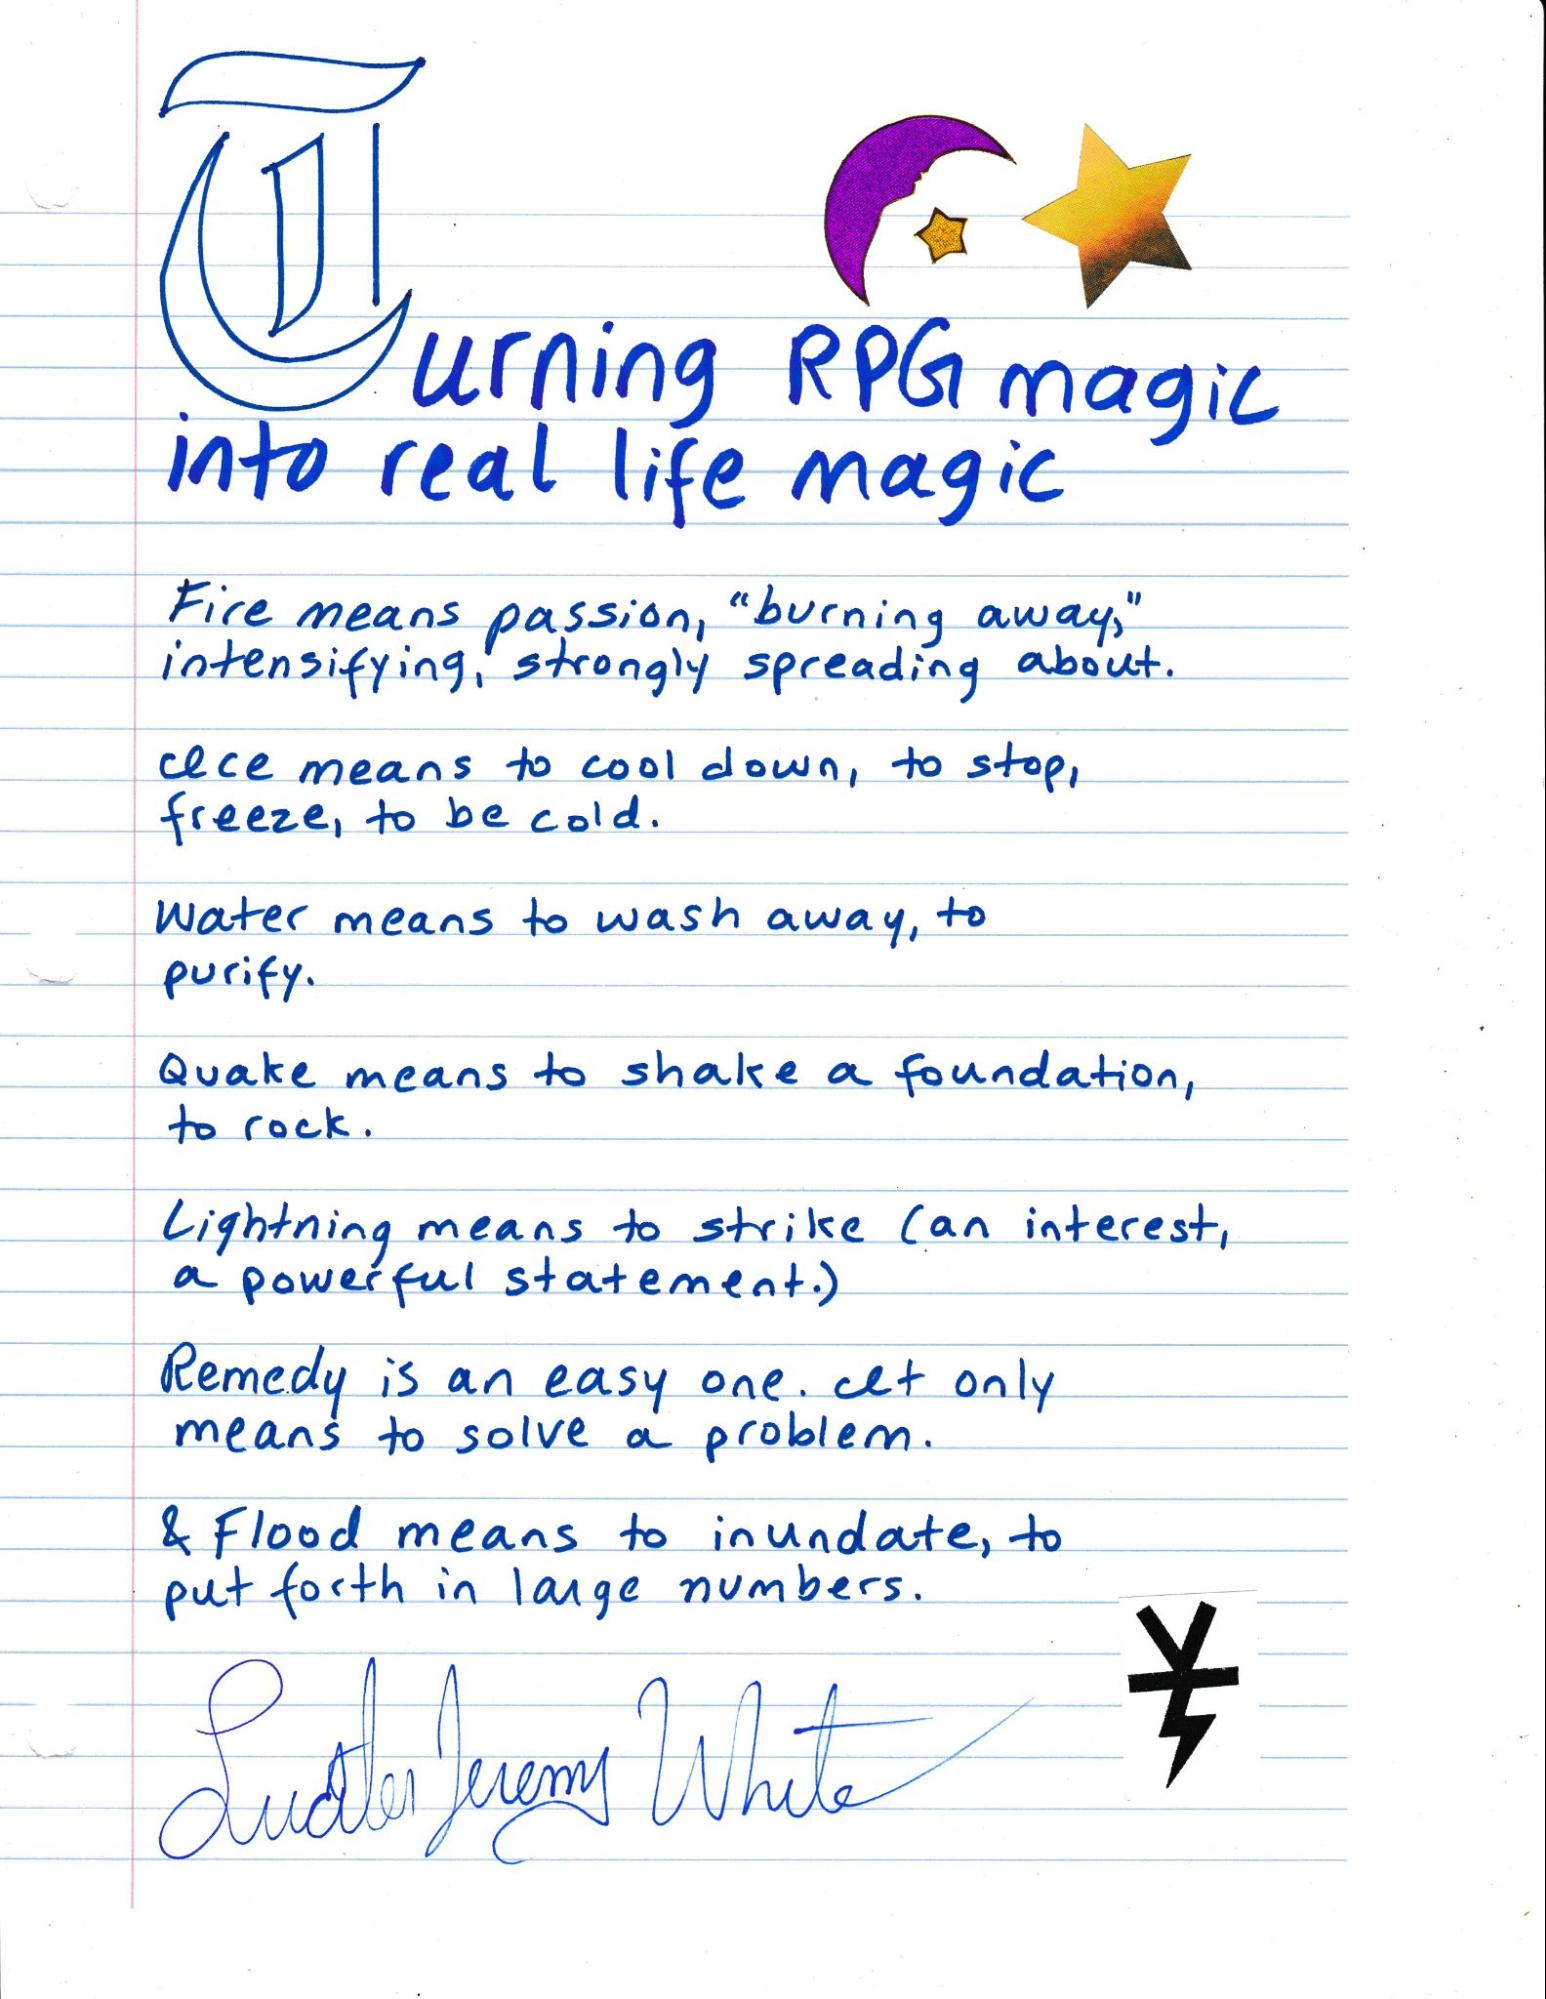 Turning RPG magic
into real life magic
Fire means passion, "burning away,"
intensifying, strongly spreading about.
Ice means to cool down, to stop,
freeze, to be cold.
Water means to wash away, to
purify.
Quake means to shake a foundation,
to rock.
Lightning means to strike (an interest,
a powerful statement.)
Remedy is an easy one. It only
means to solve a problem.
& Flood means to inundate, to
put forth in large numbers.
Jeremy White